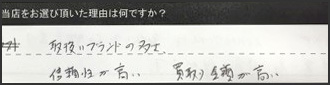 当店をお選び頂いた理由は何ですか？
取扱いブランドの多さ
信頼性が高い 買取り金額が高い